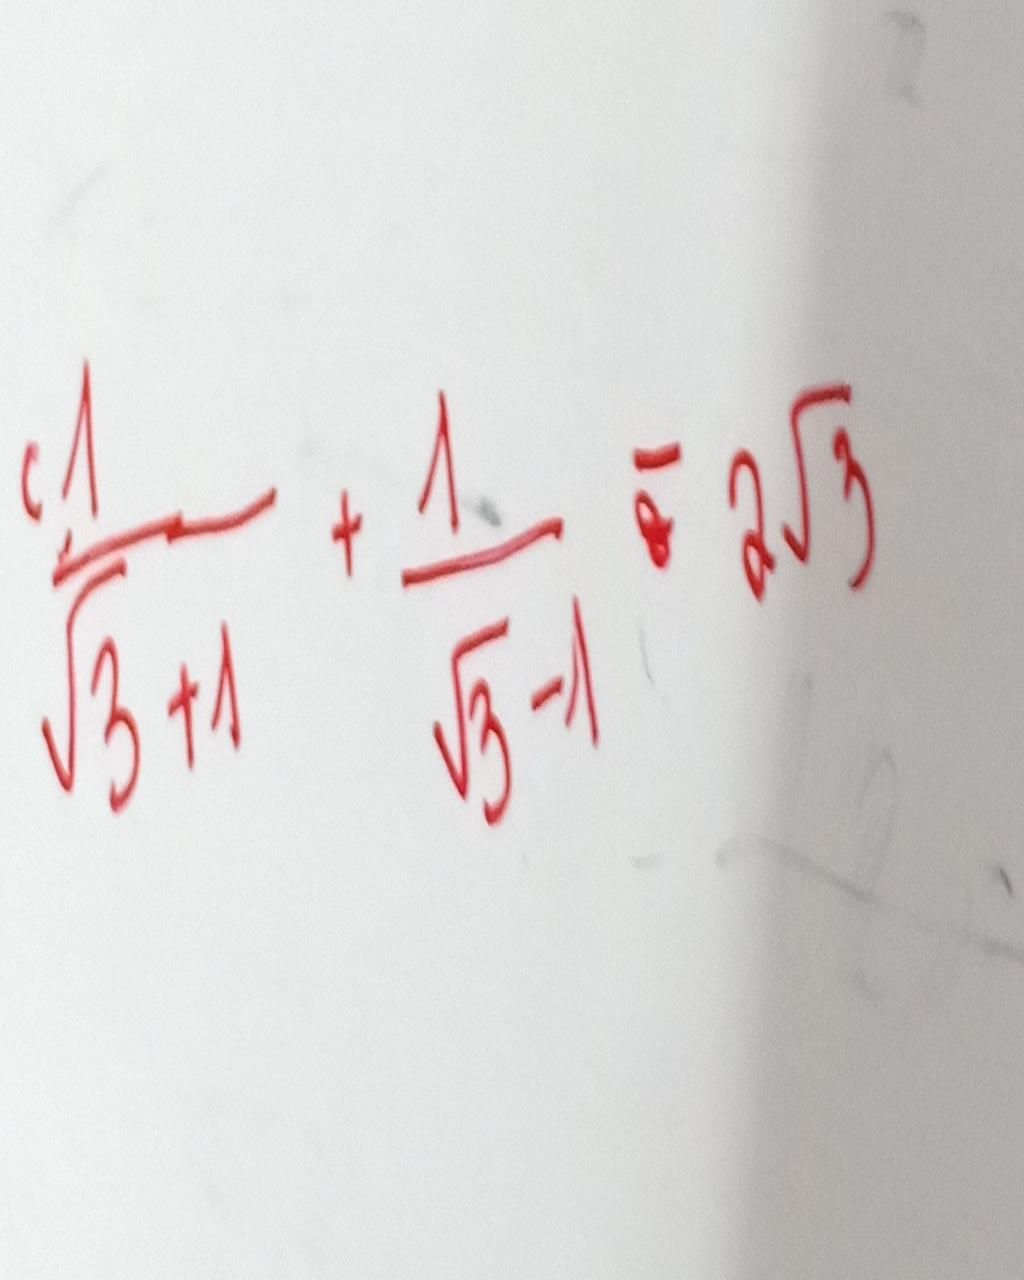 1/(√3+1) + 1/(√3-1) = 2√3